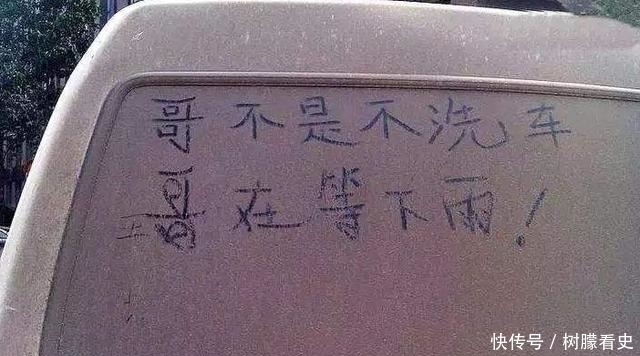 哥不是不洗车
哥在等下雨!
快传号/树朦看史